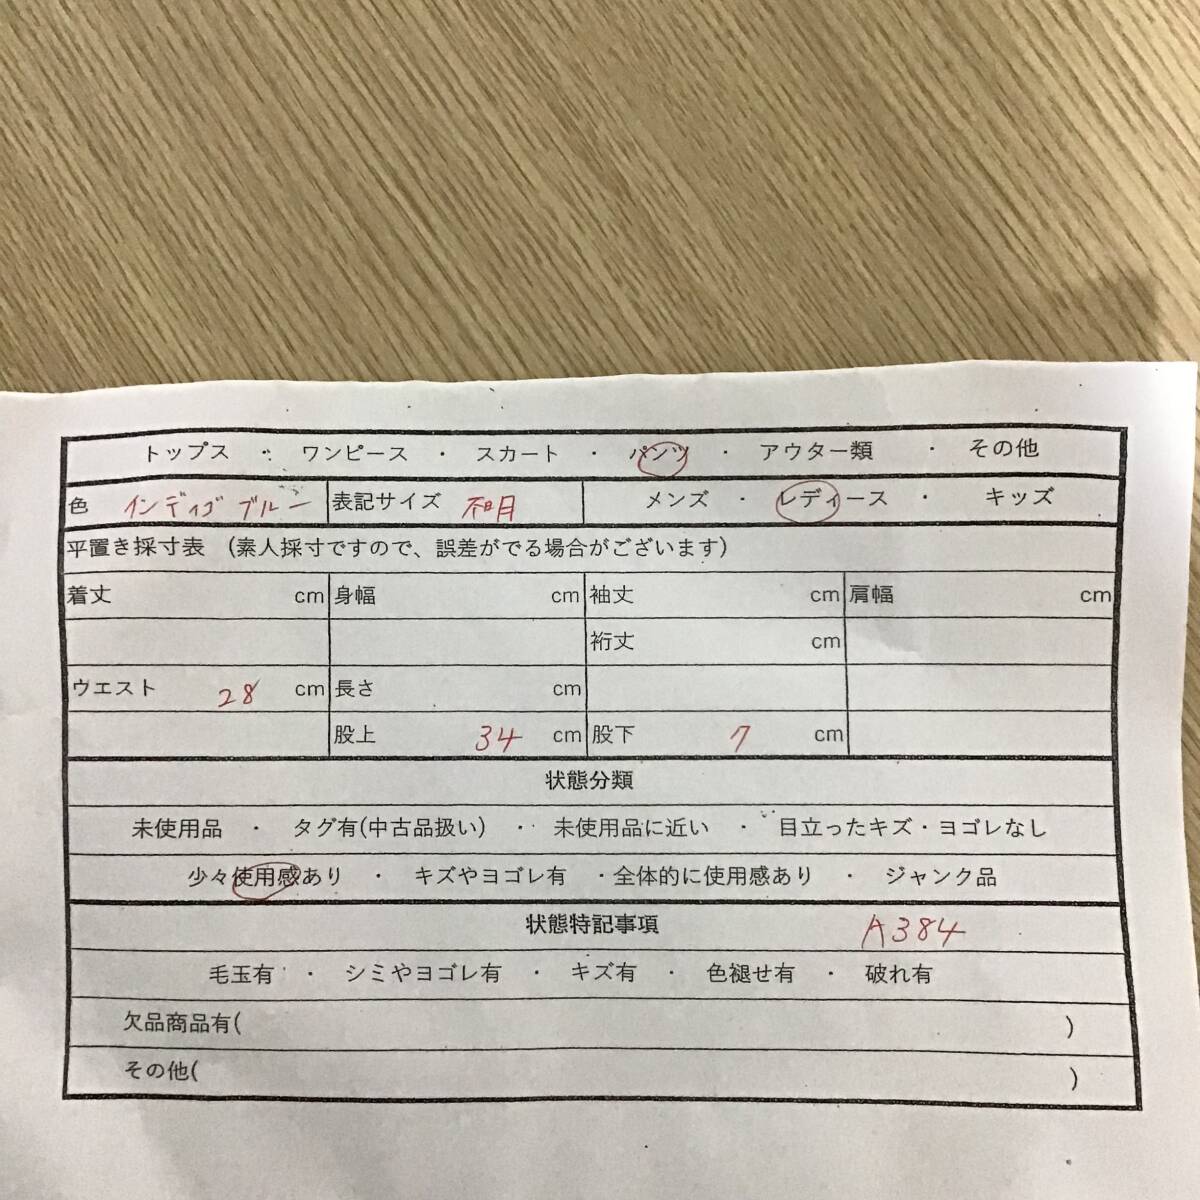 トップス ・ ワンピース ・ スカート ・ パンツ ・ アウター類 ・ その他
色 インディゴブルー 表記サイズ 不明 メンズ ・ レディース ・ キッズ
平置き採寸表 (素人採寸ですので、誤差がでる場合がございます)
着丈 cm 身幅 cm 袖丈 cm 肩幅 cm
裄丈 cm
ウエスト 28 cm 長さ cm
股上 34 cm 股下 7 cm
状態分類
未使用品 ・ タグ有(中古品扱い) ・ 未使用品に近い ・ 目立ったキズ・ヨゴレなし
少々使用感あり ・ キズやヨゴレ有 ・全体的に使用感あり ・ ジャンク品
状態特記事項 A384
毛玉有 ・ シミやヨゴレ有 ・ キズ有 ・ 色褪せ有 ・ 破れ有
欠品商品有( )
その他( )